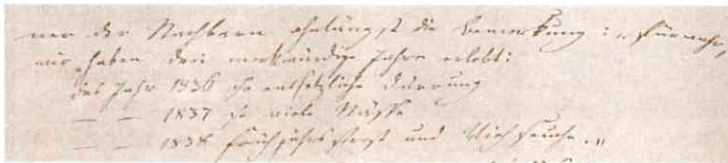 ner der Nachbarn ohnlängst die Bemerkung: „Fürwahr,
wir haben drei merkwürdige Jahre erlebt:
das Jahr 1836 die entsetzliche Dürrung
— — 1837 so viele Nässe
— — 1838 Frühjahrsfrost und Viehseuche."